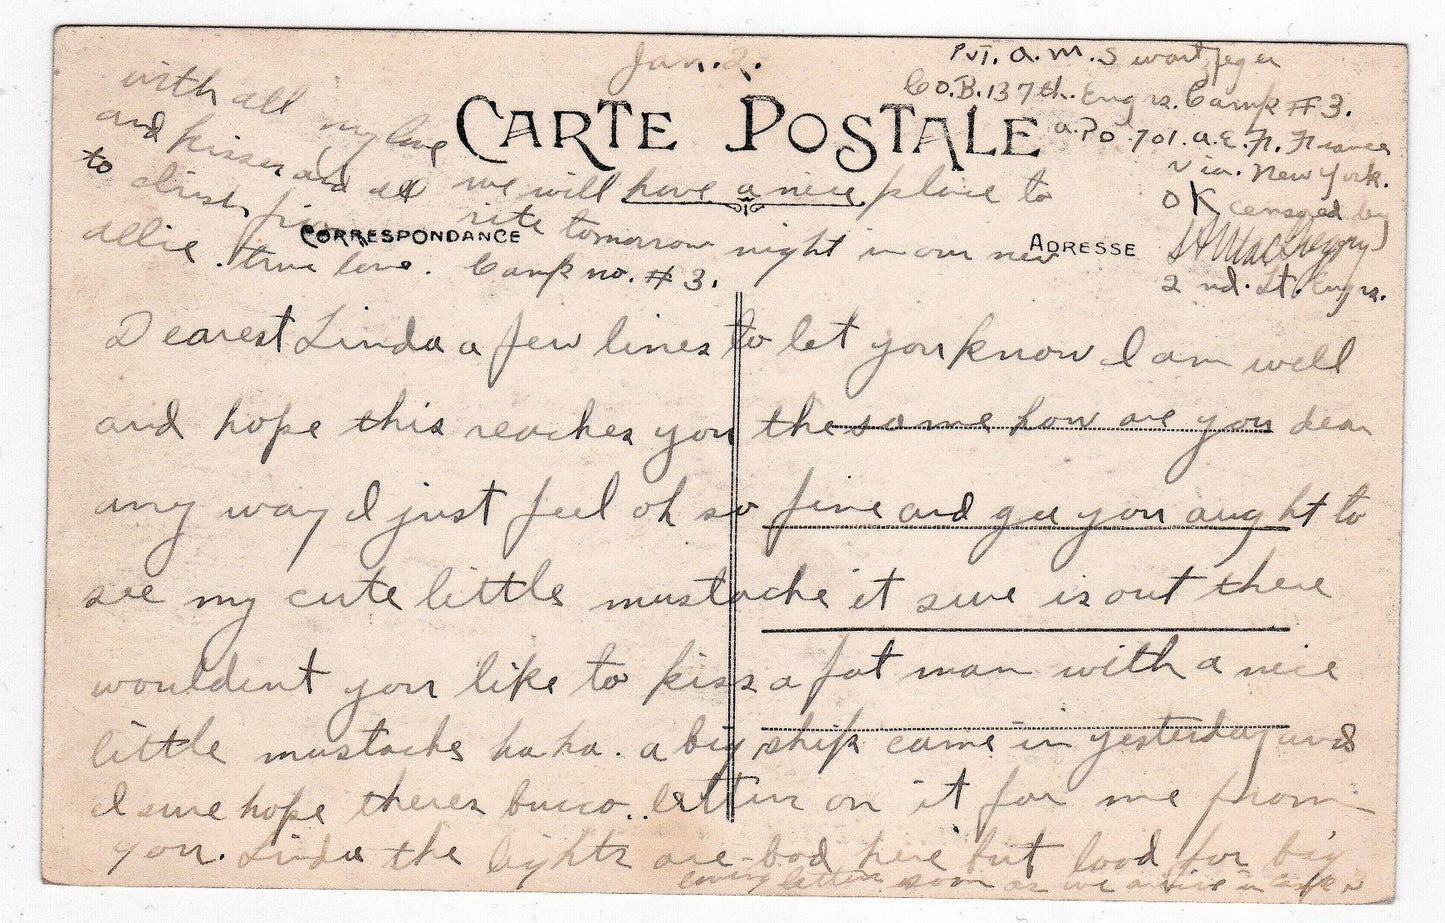 Jan. 2.
Pvt. A. M. Swartzfeger
Co. B. 137th. Engrs. Camp #3.
A. Po. 701. A. E. F. France
Via. New York.
OK censored by
MacGregory
2nd. Lt. Engrs.
CARTE POSTALE
CORRESPONDANCE
ADRESSE
Dearest Linda a few lines to let you know I am well
and hope this reaches you the same how are you dear
any way I just feel oh so fine and gee you aught to
see my cute little mustache it sure is out there
wouldent you like to kiss a fat man with a nice
little mustache ha ha. a big ship came in yesterday and
I sure hope theres bucco.. letters on it for me from
you. Linda the lights are bad here but look for big
loving letter soon as we arrive in
we will have a nice place to
rite tomorrow night in our new
Camp no. #3.
with all my love
and kisses and all
to
allie. true love.